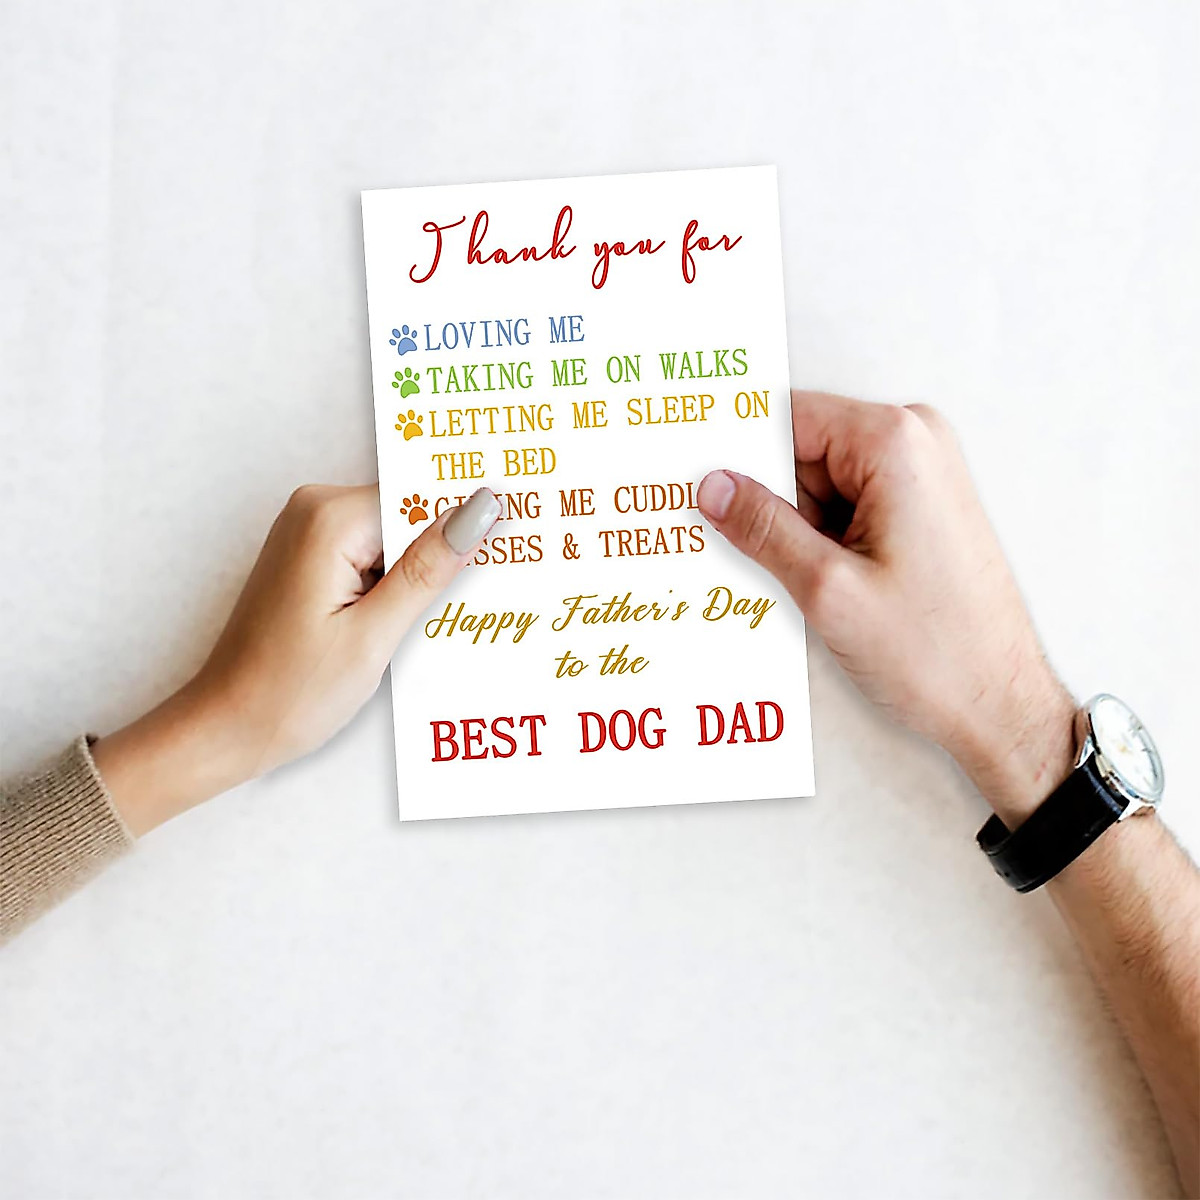 Thank you for
LOVING ME
TAKING ME ON WALKS
LETTING ME SLEEP ON
THE BED
ME
& TREATS
Happy Father's Day
to the
BEST DOG DAD